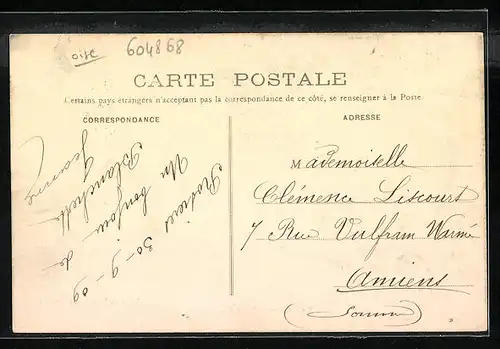 oise
604868
CARTE POSTALE
Certains pays étrangers n'acceptant pas la correspondance de ce côté, se renseigner à la Poste
CORRESPONDANCE
30-9-09
Un bonjour de
Blanchette
ADRESSE
Mademoiselle
Clémence Liscourt
7 Rue Vulfram Warmé
Amiens
(Somme)